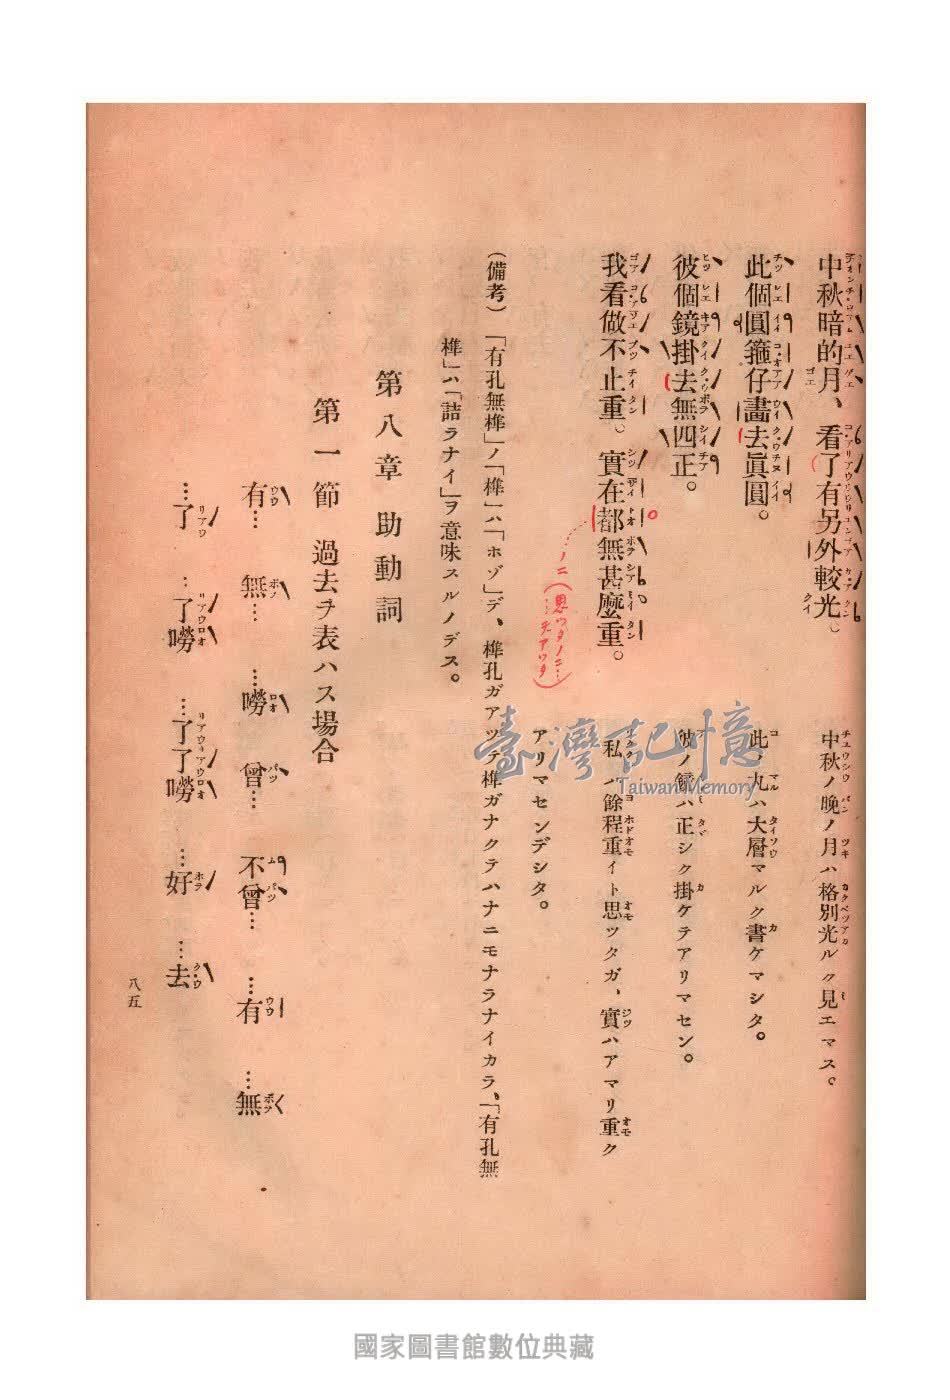 中秋暗的月、看了有另外較光。
中秋ノ晩ノ月ハ格別光ルク見エマス。
此個圓箍仔畵去眞圓。
此ノ丸ハ大層マルク書ケマシタ。
彼個鏡掛去無四正。
彼ノ鏡ハ正シク掛ケテアリマセン。
我看做不止重。實在都無甚麼重。
私ハ餘程重イト思ツタガ、實ハアマリ重ク
アリマセンデシタ。
…ノニ(思ツタノニ…
(備考)「有孔無榫」ノ「榫」ハ「ホゾ」デ、榫孔ガアツテ榫ガナクテハナニモナラナイカラ、「有孔無
榫」ハ「詰ラナイ」ヲ意味スルノデス。
第八章 助動詞
第一節 過去ヲ表ハス場合
有… 無… …嘮 曾… 不曾… …有 …無
…了 …了嘮 …了了嘮 …好 …去
八五
臺灣記憶
Taiwan Memory
國家圖書館數位典藏